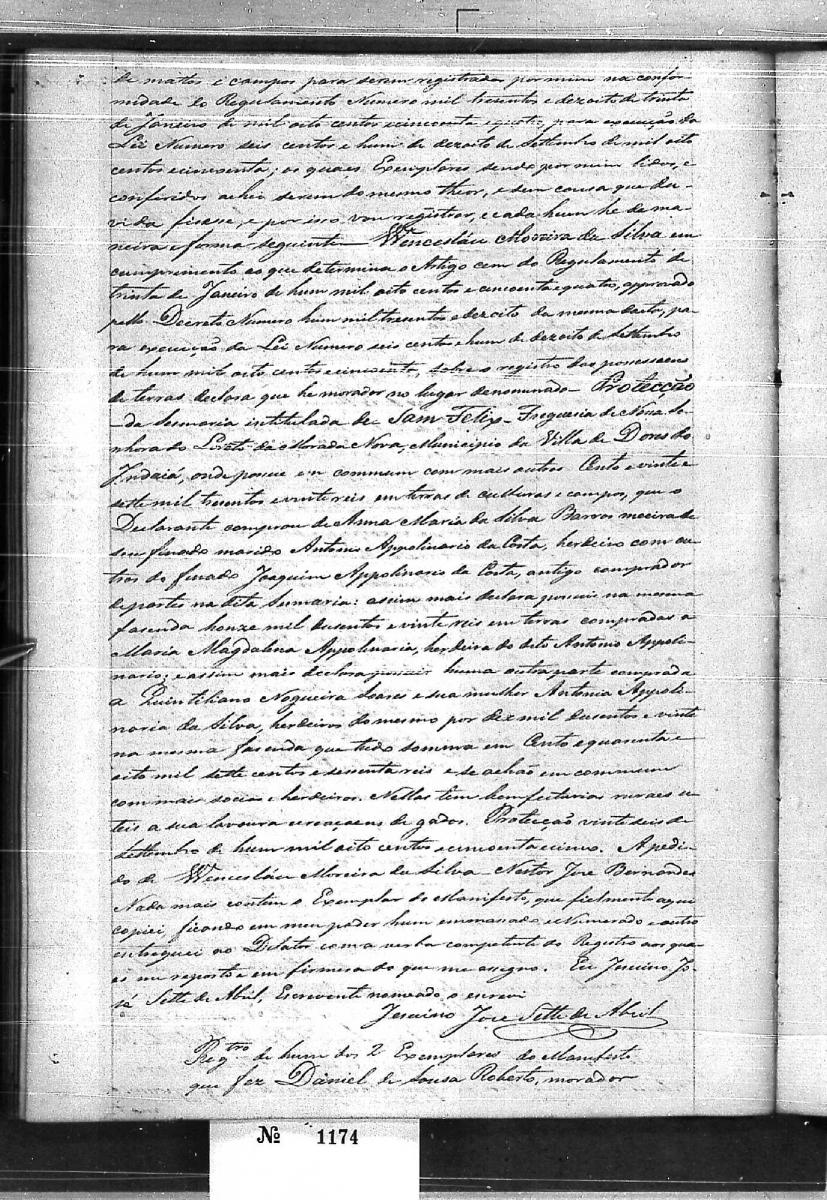 de mattos e campos para serem registrados por mim na confor-
midade do Regulamento Numero mil tresentos e dezoito de trinta
de Janeiro de mil oito centos e cincoenta e quatro para execução da
Lei Numero seis centos e hum de dezoito de Settembro de mil oito
centos e cincoenta; os quaes Exemplares sendo por mim lidos, e
conferidos achei serem do mesmo theor, e sem cousa que du-
vida fisesse, e por isso vou registrar, e cada hum he da ma-
neira e forma seguinte Wencesláu Moreira da Silva em
cumprimento ao que determina o Artigo cem do Regulamento de
trinta de Janeiro de hum mil oito centos e cincoenta e quatro, approvado
pello Decreto Numero hum mil tresentos e dezoito da mesma data, pa-
ra execução da Lei Numero seis centos e hum de dezoito de Settembro
de hum mil oito centos e cincoenta, sobre o registro das possessoens
de terras declara que he morador no lugar denominado Protecção
da Sesmaria intitulada de Sam Felix Freguesia de Nossa Se-
nhora do Loreto da Morada Nova, Municipio da Villa de Dores do
Indaiá, onde possue em commum com mais outros Cento e vinte e
sette mil tresentos e vinte reis em terras de culturas e campos, que o
Declarante comprou de Anna Maria da Silva Barros meeira de
seu finado marido Antonio Appolinario da Costa, herdeiro com ou-
tros do finado Joaquim Appolinario da Costa, antigo comprador
de partes na dita Sesmaria: assim mais declara possuir na mesma
fasenda honze mil dusentos e vinte reis em terras compradas a
Maria Magdalena Appolinaria, herdeira do dito Antonio Appoli-
nario; e assim mais declara possuir huma outra parte comprada
a Quintiliano Nogueira Soares e sua mulher Antonia Appoli-
naria da Silva, herdeiros do mesmo por dez mil dusentos e vinte
na mesma fasenda que tudo somma em Cento e quarenta e
oito mil sette centos e sessenta reis e se achão em commum
com mais socios e herdeiros. Nellas tem bemfeitorias ruraes u-
teis a sua lavoura e creaçoens de gados. Protecção vinte seis de
Settembro de hum mil oito centos e cincoenta e cinco. A pedi-
do de Wencesláu Moreira da Silva Nestor José Bernardes
Nada mais contem o Exemplar do Manifesto, que fielmente aqui
copiei, ficando em meu poder hum emmassado e Numerado e outro
entreguei ao Dilator com a verba competente do Registro aos qua-
es me reporto e em firmesa do que me assigno. Eu Jesuino Jo-
sé Sette de Abril, Escrevente nomeado o escrevi
Jesuino José Sette de Abril
Regtro de hum dos 2 Exemplares do Manifesto
que fez Daniel de Sousa Roberto, morador
No 1174